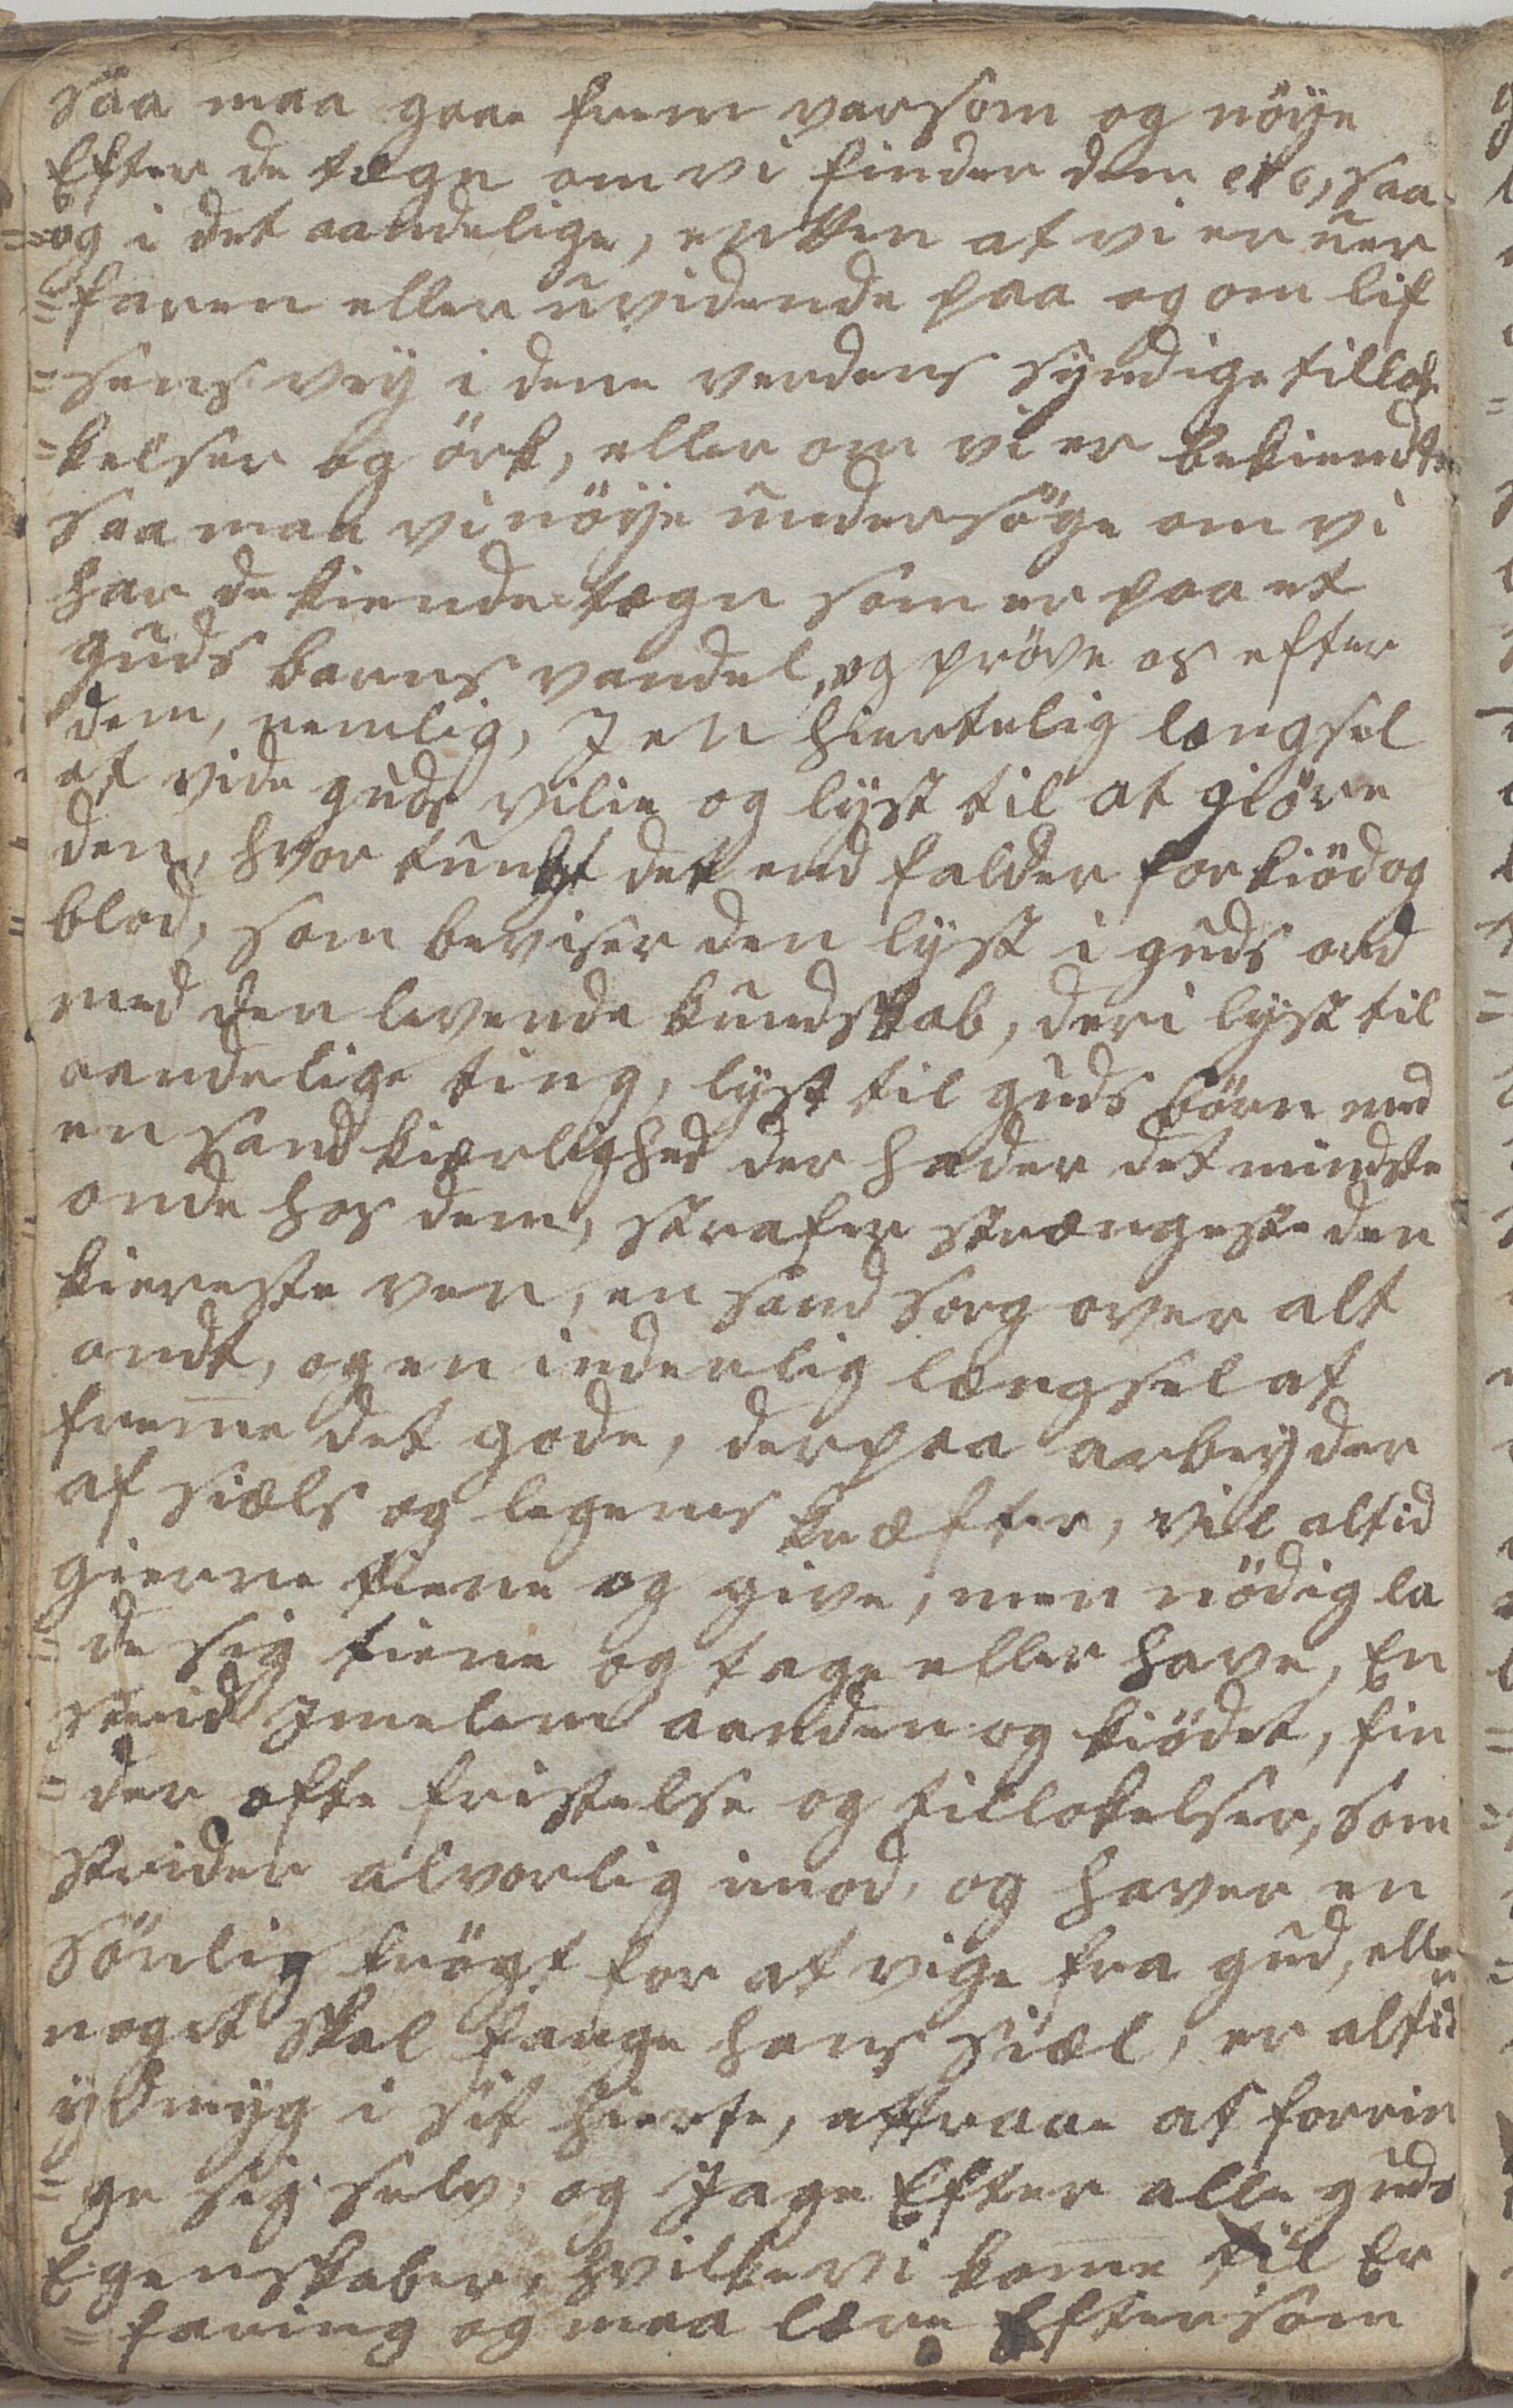 saa maa gaae frem varsom og nöÿe
Efter de tegn om vi finder dem etc, saa
=og i det aandelige, entten at vi er uer
=faren eller uvidende paa og om lif
=sens veÿ i dene verdens sÿndige tillok
=kelser og örk, eller om vi er bekiendte
saa maa vi nöÿe undersöge om vi
har de kiende tegn som er paa et
guds barns vandel, og pröve os efter
dem, nemlig, Jen hiertelig længsel
at vide guds vilie og lÿst til at giöre
den, hvor tungt det end falder for kiöd og
blod, som beviser den lÿst i guds ord
med den levende kundskab, deri lÿst til
aandelige ting, lÿst til guds börn med
en sand kierlighed der hader det mindste
onde hos dem, strafer strængeste den
kiereste ven, en sand sorg over alt
ondt, og en inderlig længsel at
freme det gode, derpaa arbeÿder
af siæls og legems kræfter, vil altid
gierne tiene og give, men nödig la
=de sig tiene og tage eller have, En
striid Jmelem aanden og kiödet, fin
=der ofte fristelse og tillokelser, som
strider alvorlig imod, og haver en
sönlig frögt for at vige fra gud, eller
noget skal fange hans siæl, er altid
ÿdmÿg i sit hierte, attraae at forrin
=ge sig selv, og Jage Efter alle guds
Egenskaber, hvilke vi kome til Er
=faring og maa lære Eftersom